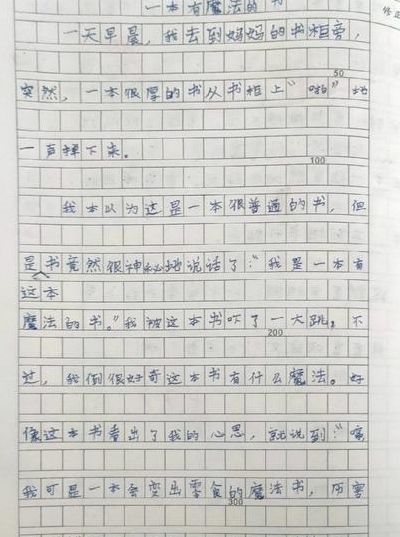 一本有魔法的书
修正
一天早晨，我去到妈妈的书柜旁，
50
突然，一本很厚的书从书柜上“啪”地
一声掉下来。
100
我本以为这是一本很普通的书，但
是书竟然很神秘地说话了：“我是一本有
这本
魔法的书。”我被这本书吓了一大跳，不
200
过，我倒很好奇这本书有什么魔法。好
像这本书看出了我的心思，就说到：“嘻
我可是一本会变出零食的魔法书，厉害
300